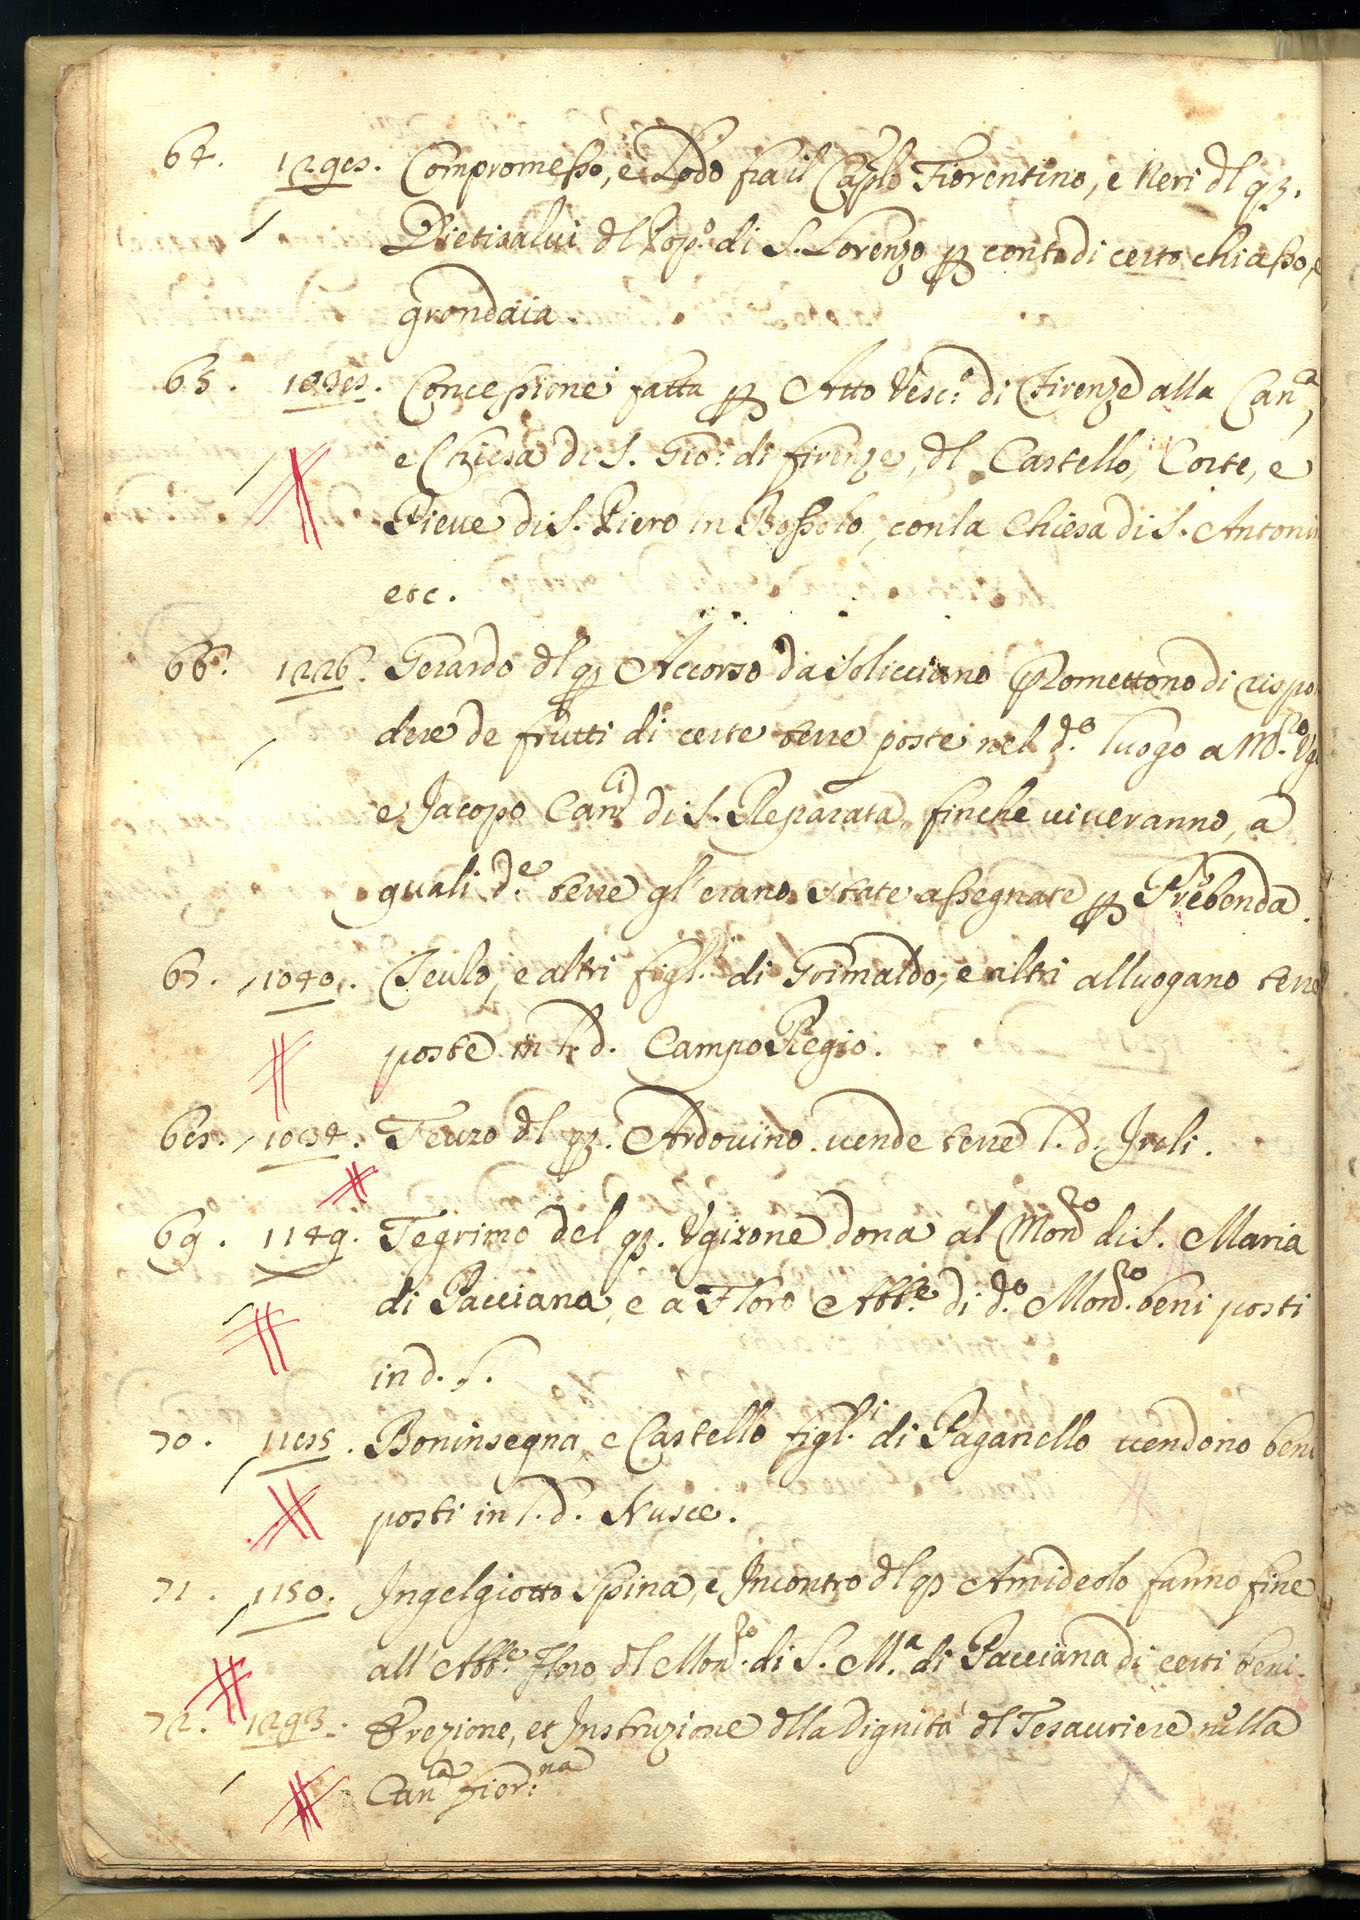 64. 1298. Compromesso, e Lodo fra il Cap.lo Fiorentino, e Neri dl qz.
Dietisalvi dl Pop.o di S. Lorenzo p conto di certo chiasso, e
grondaia.
65. 1038. Concessione fatta p Atto Vesc.o di Firenze alla Can.a,
e Chiesa di S. Gio: di firenze, dl Castello, Corte, e
Pieve di S. Piero in Bossolo, con la Chiesa di S. Antonin
etc.
66. 1226. Gerardo dl qz Accorso da Solicciano Promettono di rispo
dere de frutti di certe terre poste nel d.o luogo a M.ro Ug
e Jacopo Can.i di S. Reparata finche viveranno, a
quali d.e terre gl'erano state assegnate p Prebenda.
67. 1040. Teulo, e altri figl.i di Grimaldo, e altri alluogano terre
poste in l. d. Campo Regio.
68. 1034. Teuzo dl qz. Ardovino vende terre l. d. Iuli.
69. 1149. Tegrimo del qz. Ugizone dona al Mon.ro di S. Maria
di Pacciana, e a Floro Abb.e di d.o Mon.ro beni posti
in d. .
70. 1185. Boninsegna, e Castello figl.i di Paganello vendono beni
posti in l. d. Nusce.
71. 1150. Ingelgiotto Spina, e Incontro dl qz Amideolo fanno fine
all'Abb.e Floro dl Mon.ro di S. M.a di Pacciana di certi beni.
72. 1293. Erezione, et Instruzione dlla Dignità dl Tesauriere nella
Can.ca fior:na